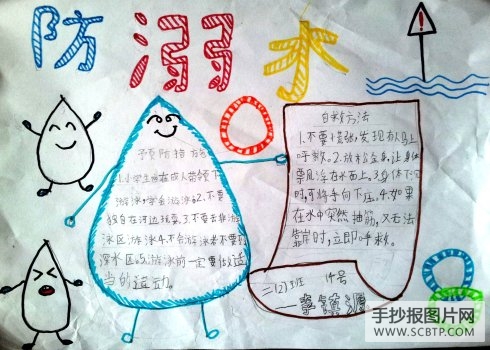 防溺水
预防措施
1.小学生应在成人带领下
游泳,学会游泳。2.不要
独自在河边玩耍。3.不要去非游
泳区游泳。4.不会游泳者不要到
深水区。5.游泳前一定要做适
当的运动。
自救方法
1.不要慌张,发现有人马上
呼救。2.放松全身,让身体
飘浮在水面上。3.身体下沉
时,可将手向下压。4.如果
在水中突然抽筋,又无法
靠岸时,立即呼救。
二(2)班 14号
李镇源
手抄报图片网
WWW.SCBTP.COM